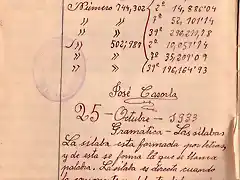 Número 744,302 1º 14,886'04
" " 7º 52,101'14
" " 31º 230,733'62
Id " 502,984 2º 10,059'74
" " 7º 35,209'09
" " 31º 196,164'93
José Casorla
25 - Octubre - 1933
Gramática - Las sílabas
La sílaba esta formada por letras
y de esta se forma lo que se llama
palabra. La sílaba es directa cuando